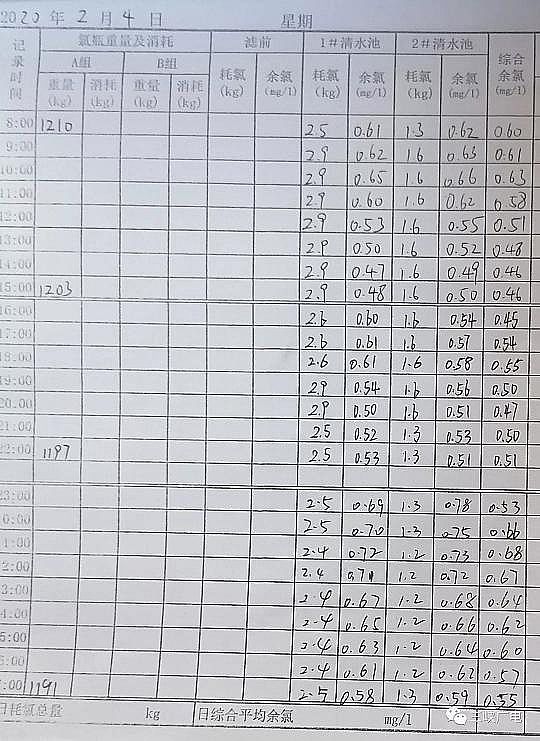 2020 年 2 月 4 日 星期
记录时间 氯瓶重量及消耗 滤前 1#清水池 2#清水池 综合余氯(mg/l)
A组 B组
重量(kg) 消耗(kg) 重量(kg) 消耗(kg) 耗氯(kg) 余氯(mg/l) 耗氯(kg) 余氯(mg/l) 耗氯(kg) 余氯(mg/l)
8:00 1210 2.5 0.61 1.3 0.62 0.60
9:00 2.9 0.62 1.6 0.63 0.61
10:00 2.9 0.65 1.6 0.66 0.63
11:00 2.9 0.60 1.6 0.62 0.58
12:00 2.9 0.53 1.6 0.55 0.51
13:00 2.9 0.50 1.6 0.52 0.48
14:00 2.9 0.47 1.6 0.49 0.46
15:00 1203 2.9 0.48 1.6 0.50 0.46
16:00 2.6 0.60 1.6 0.54 0.45
17:00 2.6 0.61 1.6 0.57 0.54
18:00 2.6 0.61 1.6 0.58 0.55
19:00 2.9 0.54 1.6 0.56 0.50
20.00 2.9 0.50 1.6 0.51 0.47
21:00 2.5 0.52 1.3 0.53 0.50
22:00 1197 2.5 0.53 1.3 0.51 0.51
23:00 2.5 0.69 1.3 0.78 0.53
0:00 2.5 0.70 1.3 0.75 0.66
1:00 2.4 0.72 1.2 0.73 0.68
2:00 2.4 0.71 1.2 0.72 0.67
3:00 2.4 0.67 1.2 0.68 0.64
4:00 2.4 0.65 1.2 0.66 0.62
5:00 2.4 0.63 1.2 0.64 0.60
6:00 2.4 0.61 1.2 0.62 0.57
7:00 1191 2.5 0.58 1.3 0.59 0.55
日耗氯总量 kg 日综合平均余氯 mg/l
广电